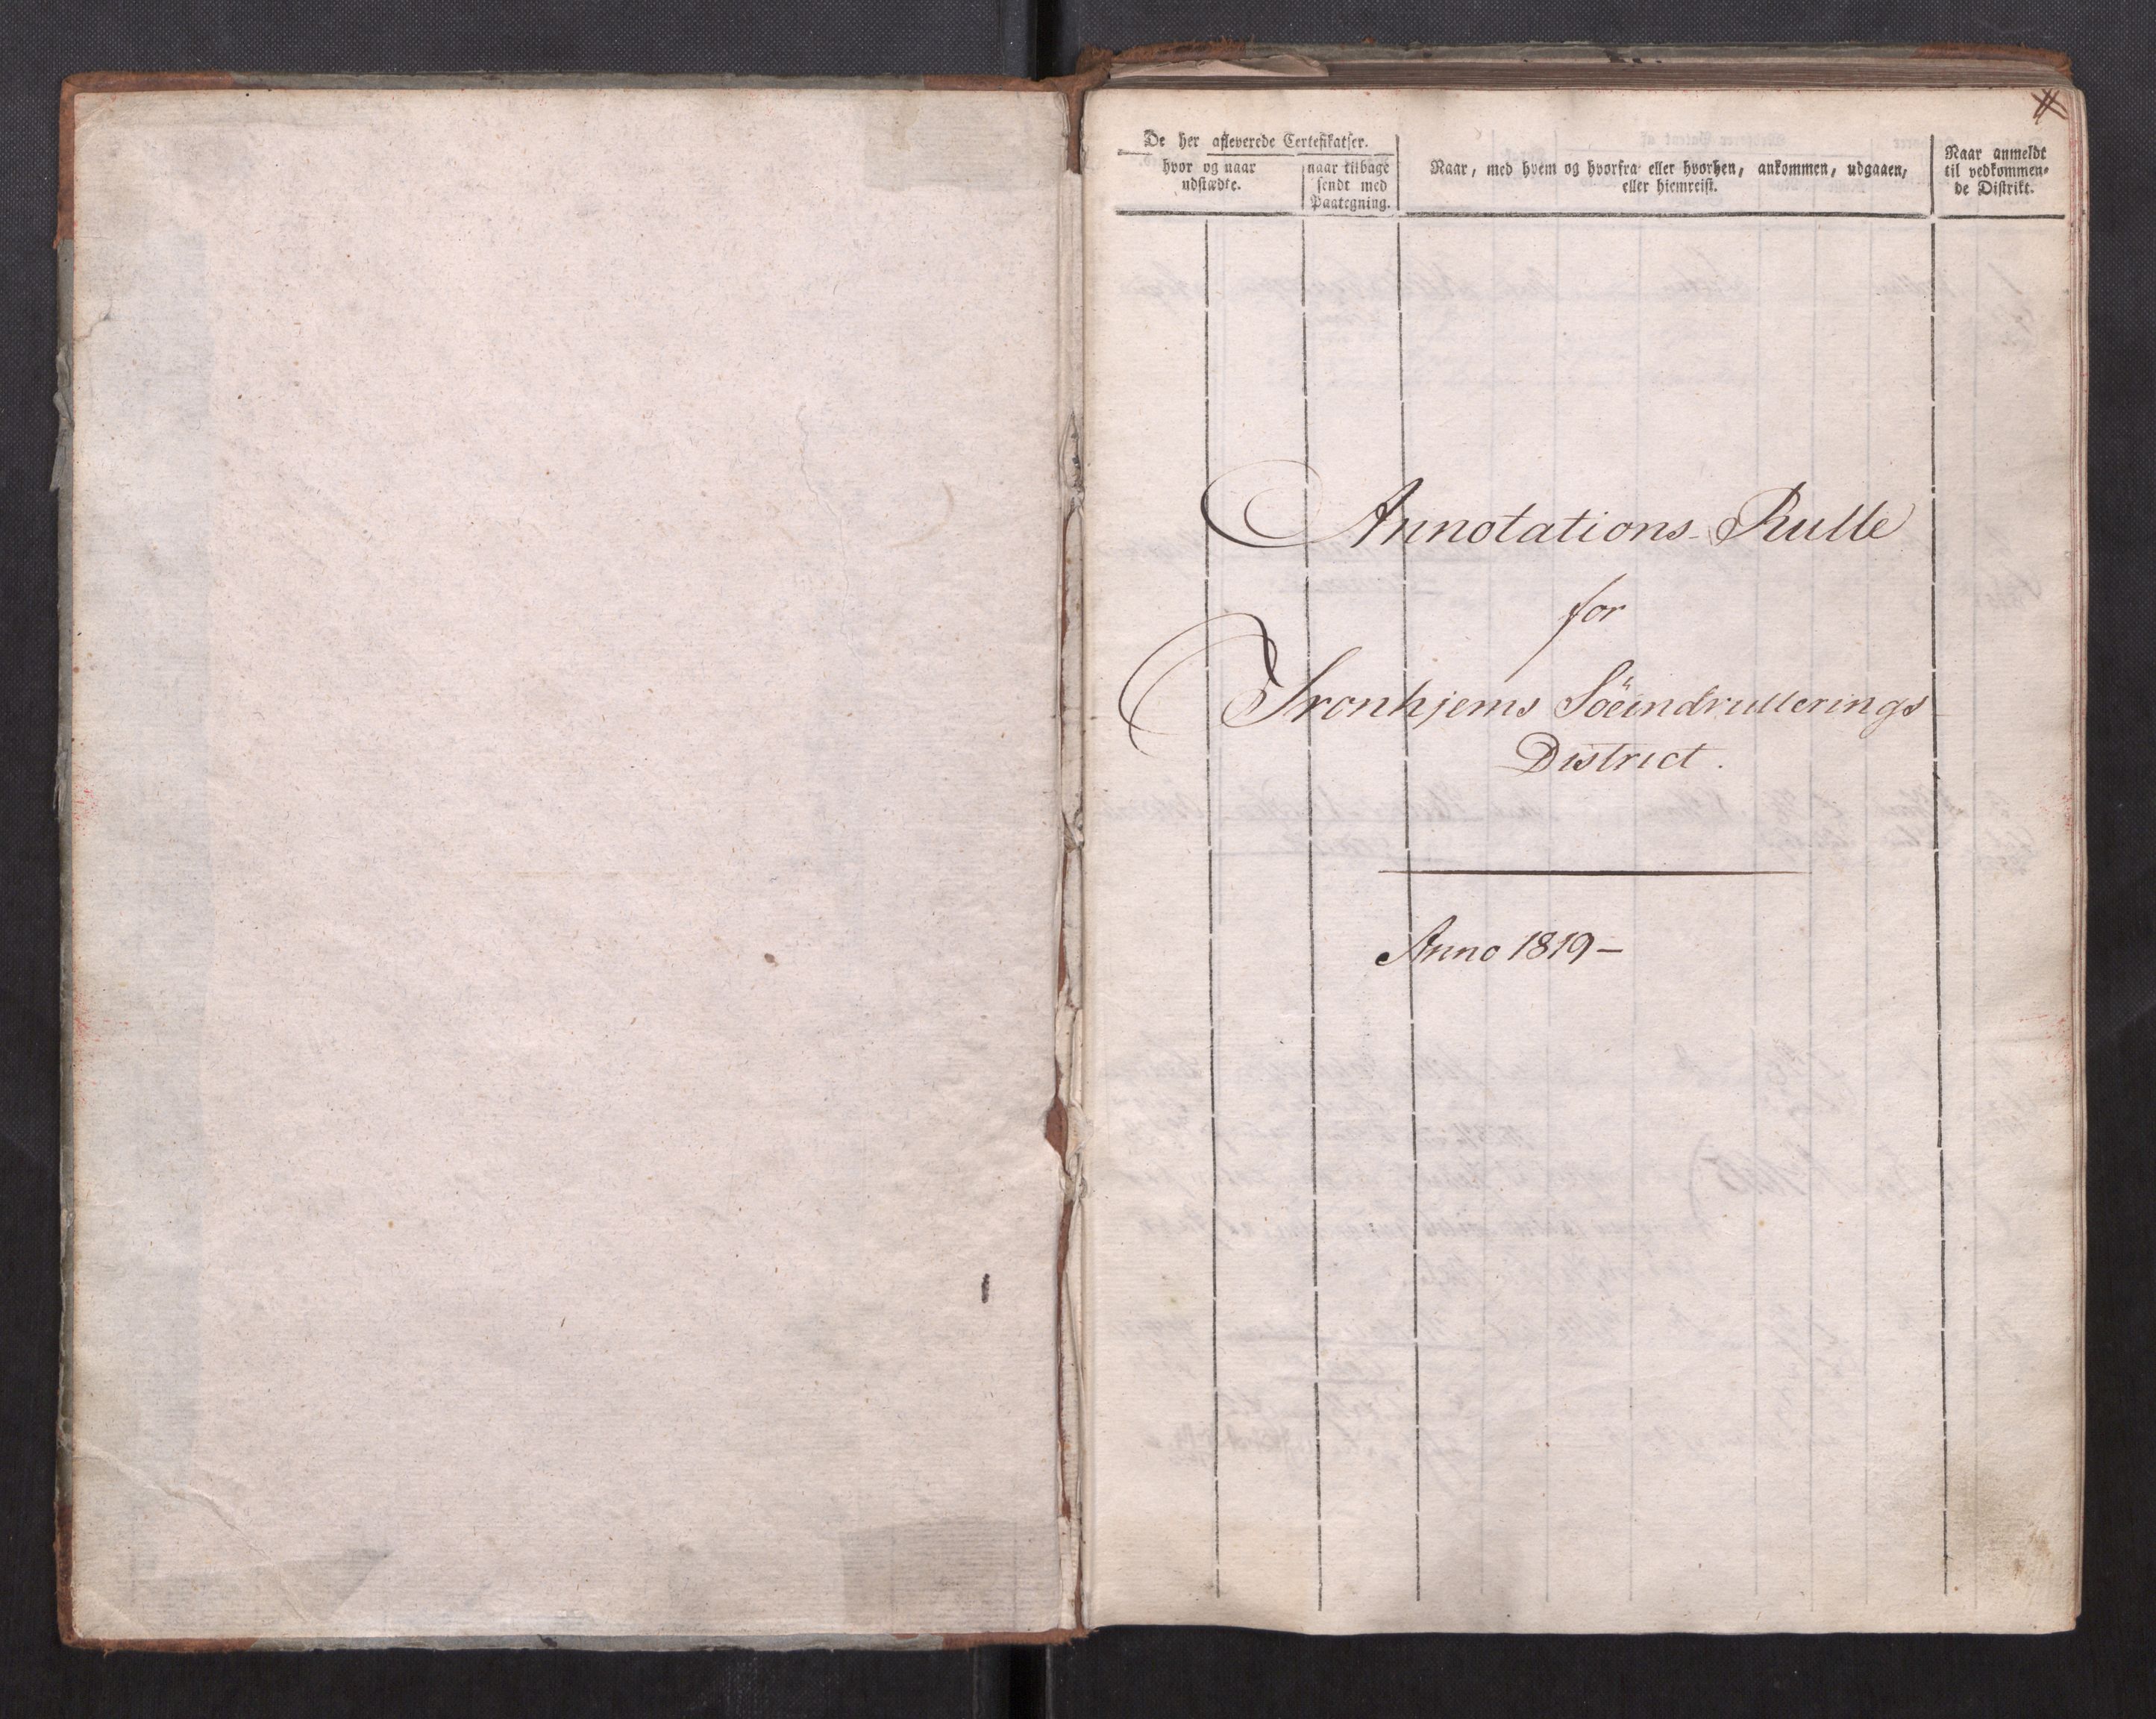 De her afleverede Certefikatser.
hvor og naar
udstædte.
naar tilbage
sendt med
Paategning.
Naar, med hvem og hvorfra eller hvorhen, ankommen, udgaaen,
eller hiemreist.
Naar anmeldt
til vedkommen=
de Distrikt.
Annotations-Rulle
for
Tronhjems Söeindrullerings
District.
Anno 1819-